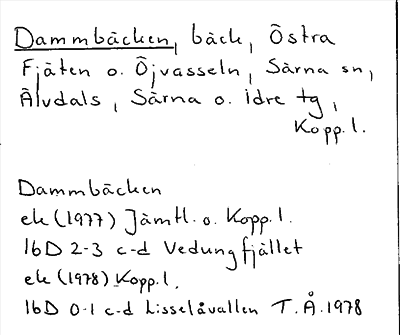 Dammbäcken, bäck, Östra
Fjäten o. Öjvasseln, Särna sn,
Älvdals, Särna o. Idre tg,
Kopp. l.
Dammbäcken
ek (1977) Jämtl. o. Kopp. l.
16D 2-3 c-d Vedungfjället
ek (1978) Kopp. l.
16D 0-1 c-d Lisselåvallen T. Å. 1978